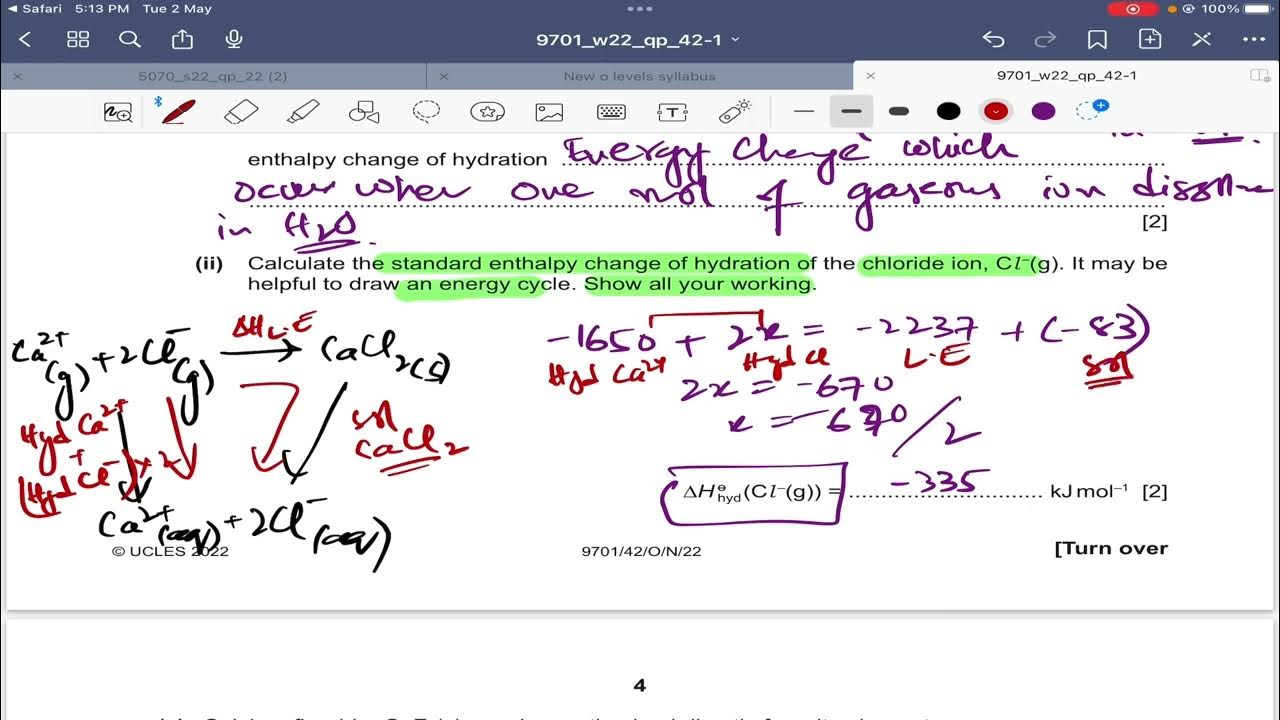 Safari 5:13 PM Tue 2 May
100%
9701_w22_qp_42-1
5070_s22_qp_22 (2)
New o levels syllabus
9701_w22_qp_42-1
enthalpy change of hydration Energy change which
occur when one mol of gaseous ion
in H2O.
[2]
(ii) Calculate the standard enthalpy change of hydration of the chloride ion, Cl⁻(g). It may be
helpful to draw an energy cycle. Show all your working.
Ca²⁺(g) + 2Cl⁻(g) → CaCl2(s)
ΔH L.E
Hyd Ca²⁺
+
(Hyd Cl⁻) × 2
sol
CaCl2
Ca²⁺(aq) + 2Cl⁻(aq)
-1650 + 2x = -2237 + (-83)
Hyd Ca²⁺ Hyd Cl L.E sol
2x = -670
x = -670/2
ΔH⦵hyd(Cl⁻(g)) = -335 kJ mol⁻¹ [2]
© UCLES 2022
9701/42/O/N/22
[Turn over
4